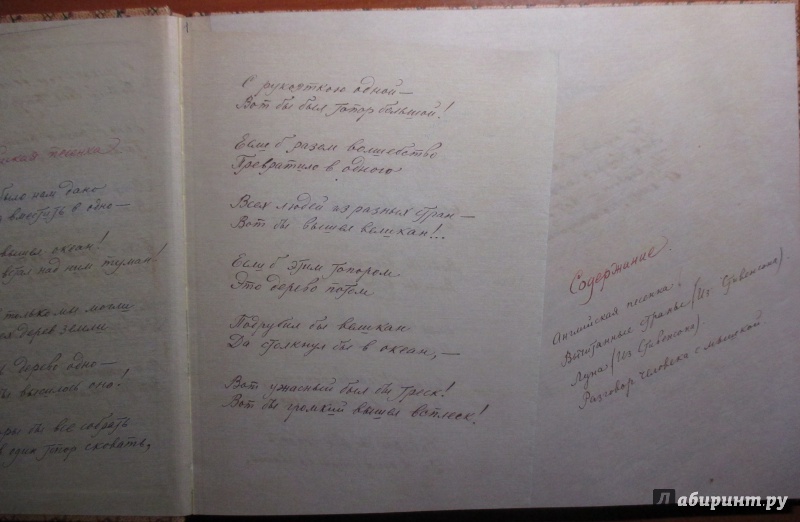 ская песенка
было нам дано
вместить в одно—
вышел океан!
встал над тем туман!
только мы могли
всех дерев земли
дерево одно—
бы высилось оно!
бы все собрать
в один топор сковать,
С рукояткою одной—
Вот бы был топор большой!
Если б разом волшебство
Превратило в одного
Всех людей из разных стран—
Вот бы вышел великан!..
Если б этим топором
Это дерево потом
Подрубил бы великан
Да столкнул бы в океан,—
Вот ужасный был бы треск!
Вот бы громкий вышел всплеск!
Содержание.
Английская песенка,
Страны (Из Стивенсона).
Луна (Из Стивенсона)
Разговор человека с мышкой
лабиринт.ру